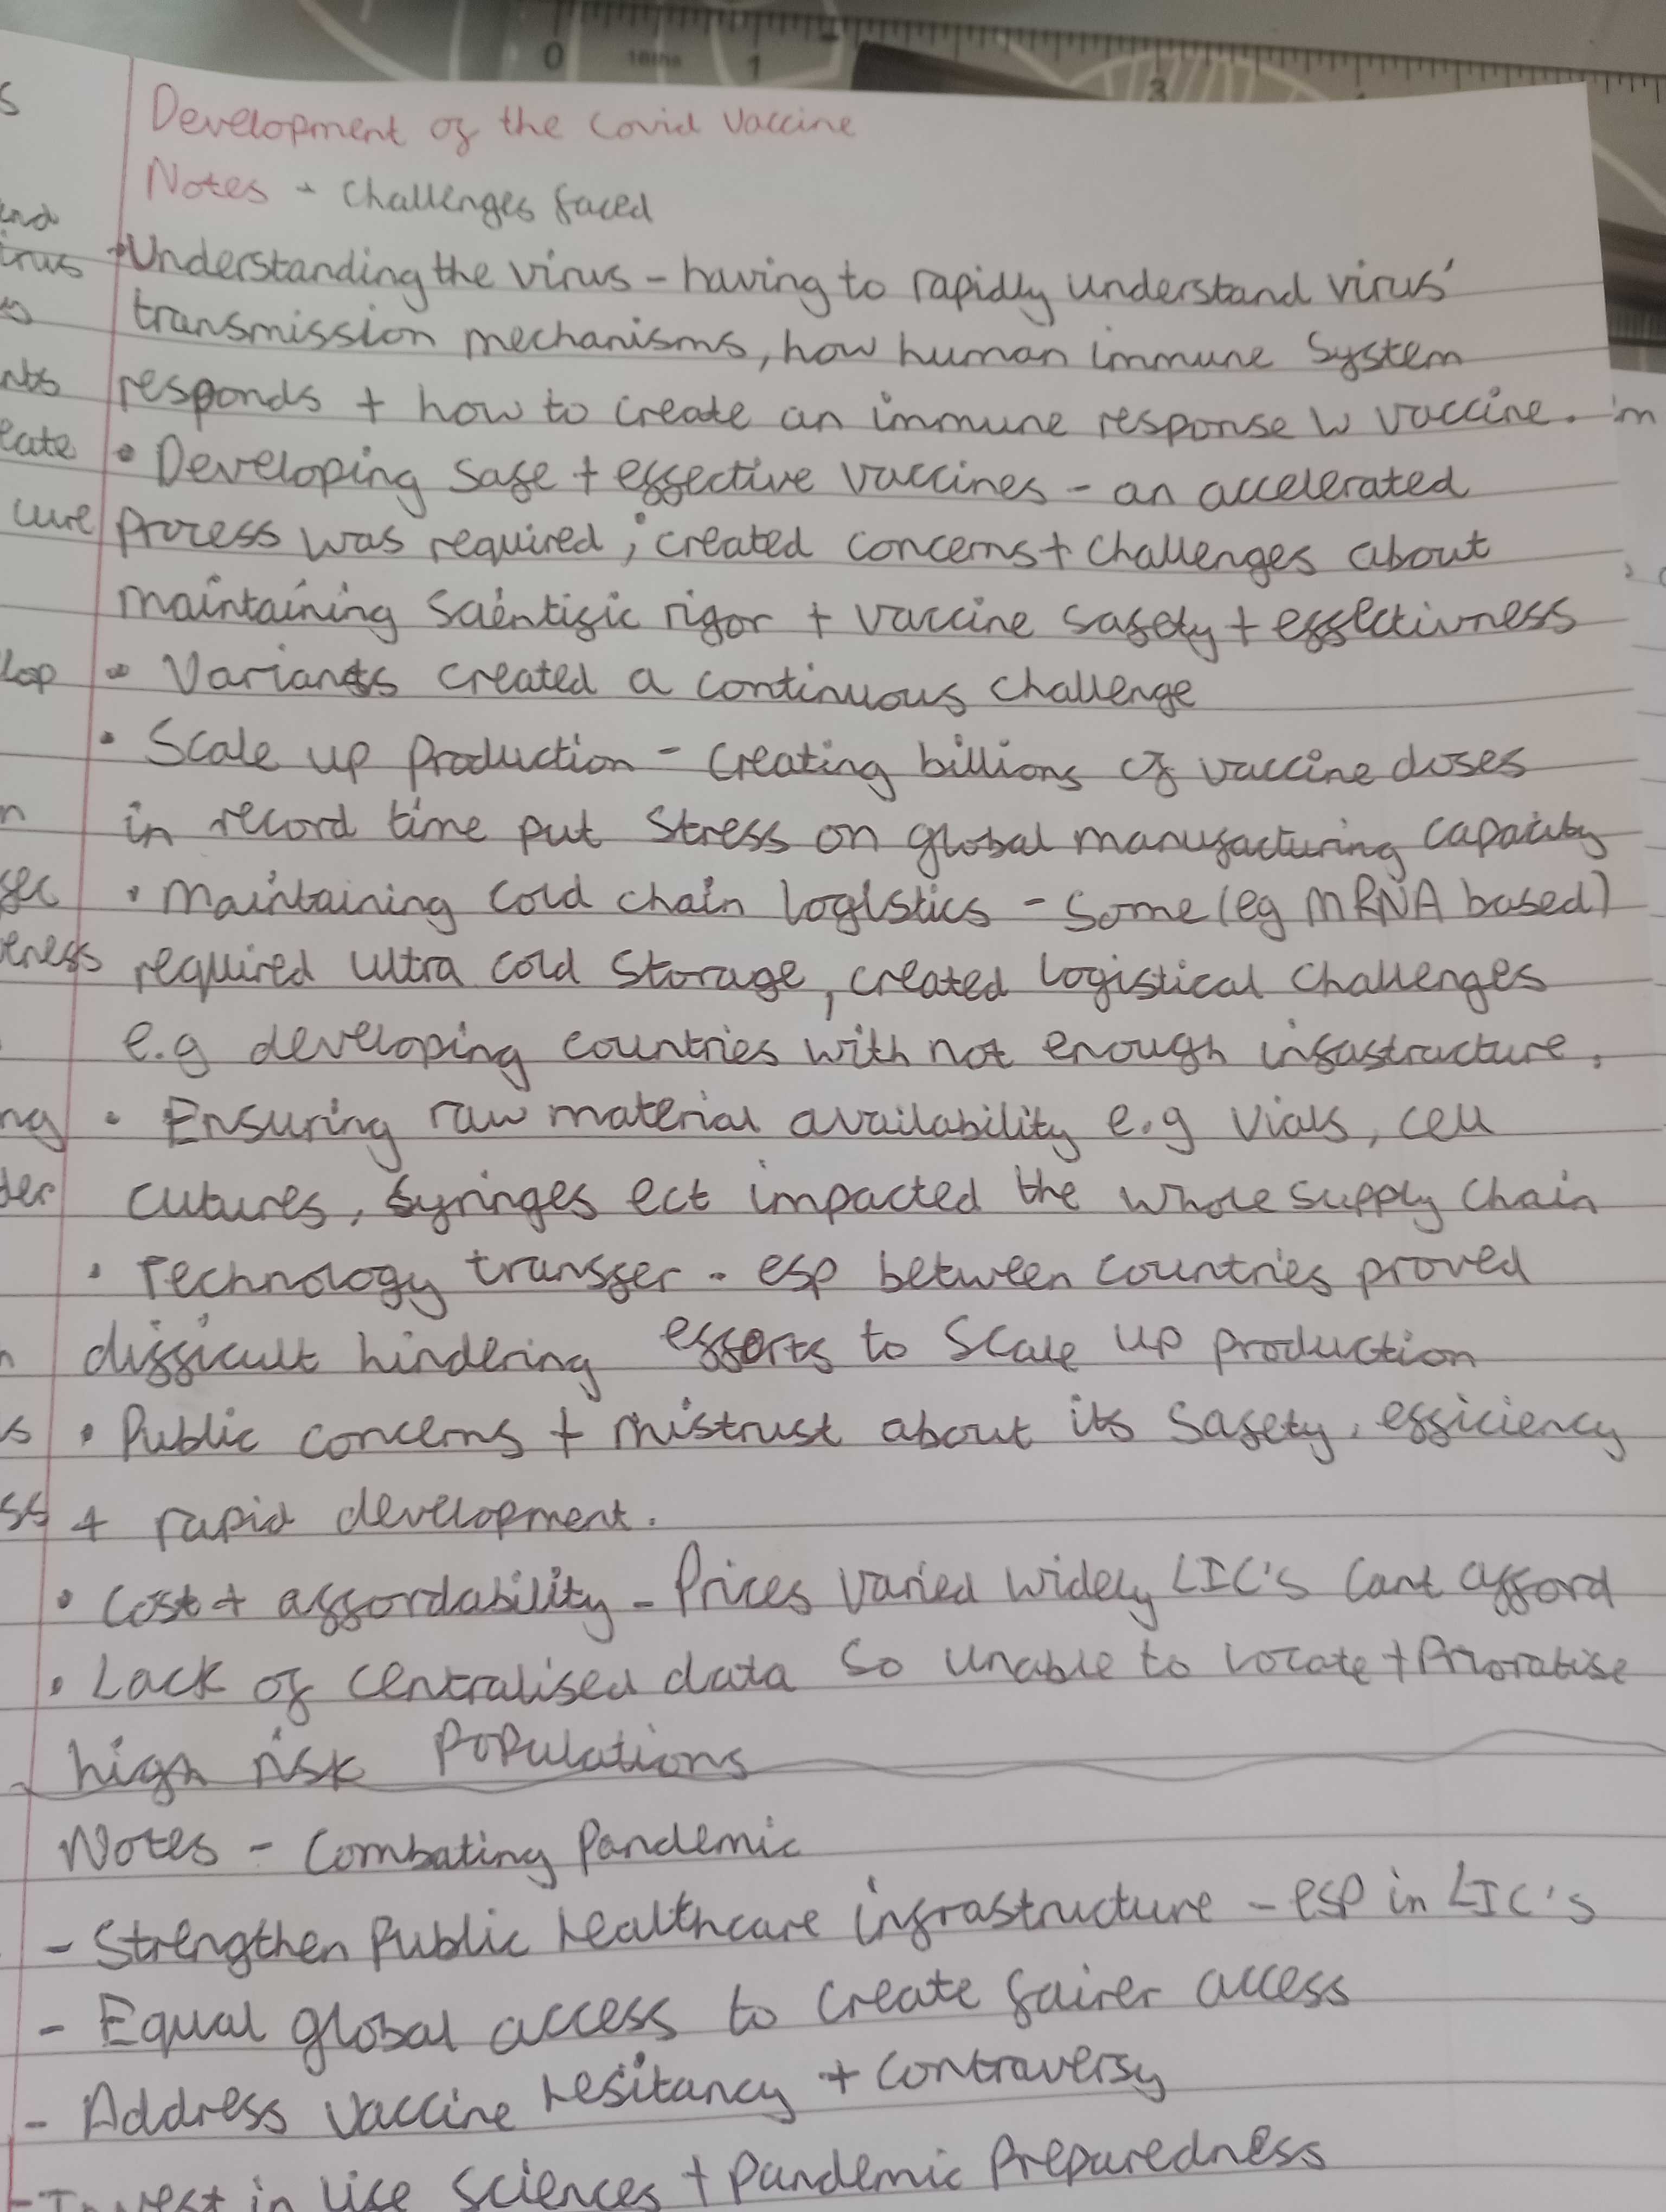 Development of the Covid Vaccine
Notes - Challenges faced
Understanding the virus - having to rapidly understand virus'
transmission mechanisms, how human immune system
responds + how to create an immune response w vaccine.
• Developing safe + effective vaccines - an accelerated
process was required; created concerns + challenges about
maintaining scientific rigor + vaccine safety + effectivness
• Variants created a continuous challenge
• Scale up production - creating billions of vaccine doses
in record time put stress on global manufacturing capacity
• Maintaining cold chain logistics - some (eg MRNA based)
required ultra cold storage, created logistical challenges
e.g developing countries with not enough infastructure.
• Ensuring raw material availability e.g vials, cell
cutures, syringes ect impacted the whole supply chain
• Technology transfer - esp between countries proved
difficult hindering efforts to scale up production
• Public concerns + mistrust about its safety, efficiency
+ rapid development.
• Cost + affordability - Prices varied widely LIC's cant afford
• Lack of centralised data so unable to locate + Prioratise
high risk populations
Notes - Combating Pandemic
- Strengthen Public healthcare infrastructure - esp in LIC's
- Equal global access to create fairer access
- Address vaccine hesitancy + contraversy
- Invest in life sciences + Pandemic Preparedness
0 10ths 1 3
end
cure